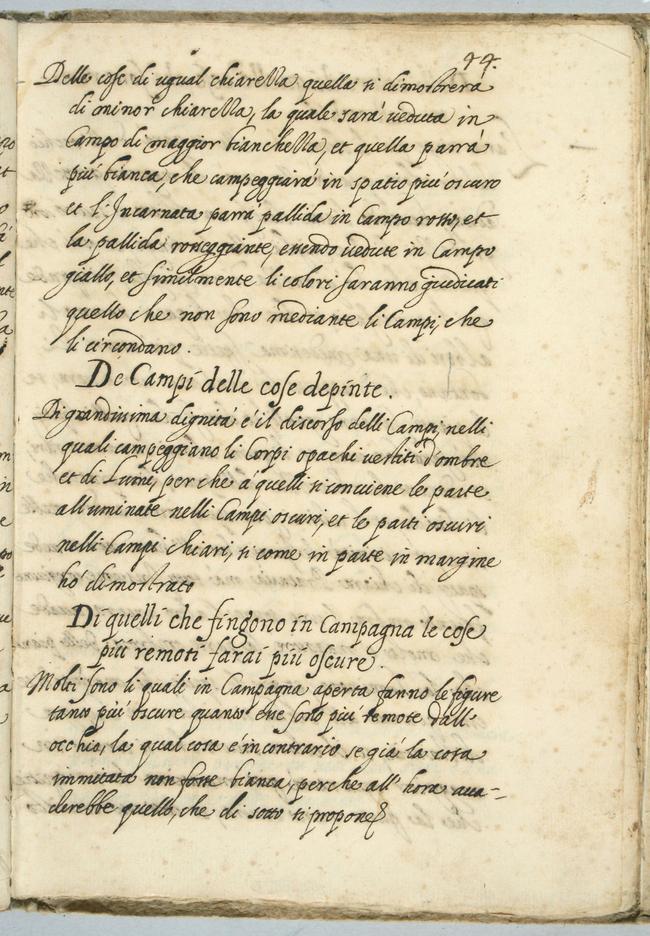 44.
Delle cose di ugual chiarezza quella si dimostrerà
di minor chiarezza, la quale sarà veduta in
Campo di maggior bianchezza, et quella parrà
più bianca, che campeggiarà in spatio più oscuro
et l'Incarnata parrà pallida in Campo rosso, et
la pallida rosseggiante, essendo vedute in Campo
giallo, et similmente li colori saranno giudicati
quello che non sono mediante li Campi, che
li circondano.
De Campi delle cose depinte.
Di grandissima dignità è il discorso delli Campi, nelli
quali campeggiano li Corpi opachi vestiti d'ombre
et di Lumi, perche à quelli si conviene le parte
alluminate nelli Campi oscuri, et le parti oscuri
nelli Campi chiari, si come in parte in margine
hò dimostrato
Di quelli che fingono in Campagna le cose
più remoti farai più oscure.
Molti sono li quali in Campagna aperta fanno le figure
tanto più oscure quanto esse sono più remote dall'
occhio, la qual cosa é incontrario se già la cosa
immitata non fosse bianca, perche all' hora acca-
derebbe quello, che di sotto si propone